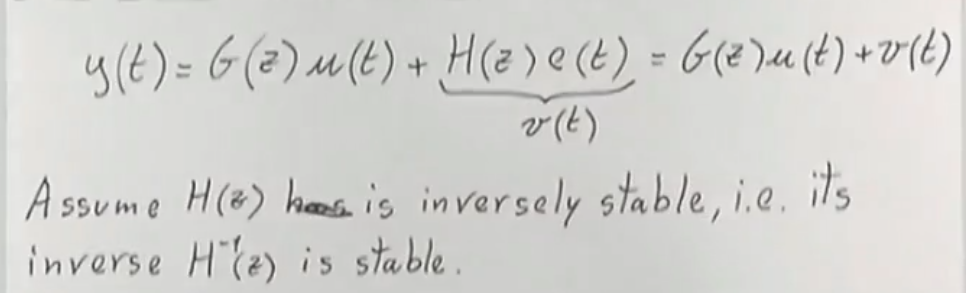 y(t) = G(z) u(t) + H(z) e(t) = G(z) u(t) + v(t)
v(t)
Assume H(z) is inversely stable, i.e. its
inverse H⁻¹(z) is stable.